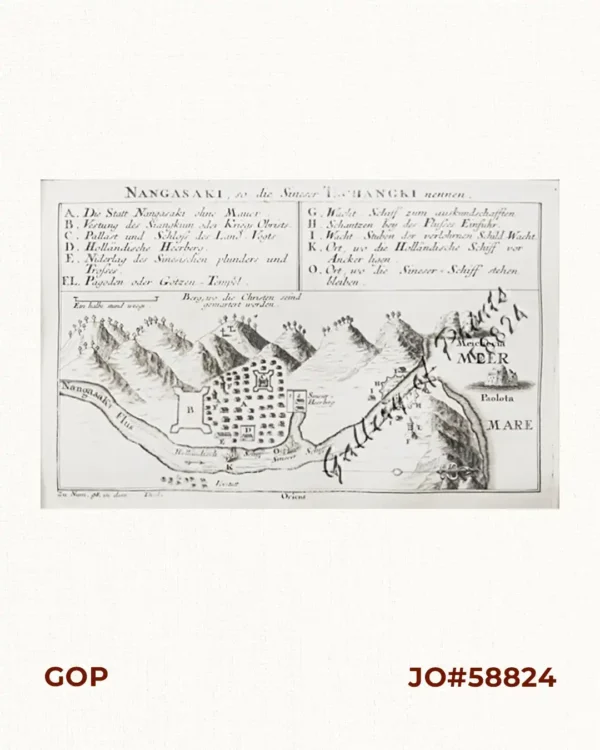 NANGASAKI, so die Sineser TSCHANGKI nennen.
A. Die Statt Nangasaki ohne Mauer
B. Vestung des Siangkum oder Kriegs Obrists.
C. Pallast und Schloss des Land Vogts
D. Holländische Heerberg.
E. Niderlag des Sinesischen plunders und
Trosses.
EL. Pagoden oder Gotzen-Tempel.
G. Wacht Schiff zum auskundschafften
H. Schantzen bey des Flusses Einfuhr.
I. Wacht Stuben der verlohrnen Schild Wacht.
K. Ort, wo die Holländische Schiff vor
Ancker ligen.
O. Ort, wo die Sineser-Schiff stehen
bleiben.
Ein halbe stund wegs
Berg, wo die Christen seind
gemartert worden.
EL
MEER
Paolota
MARE
Nangasaki Flus
B
A
C
D
E
Sineser
Heerberg
H
I
Holländisch Schiff
K
Sineser Schiff
Orient
Gallery of Prints
58824
GOP
JO#58824